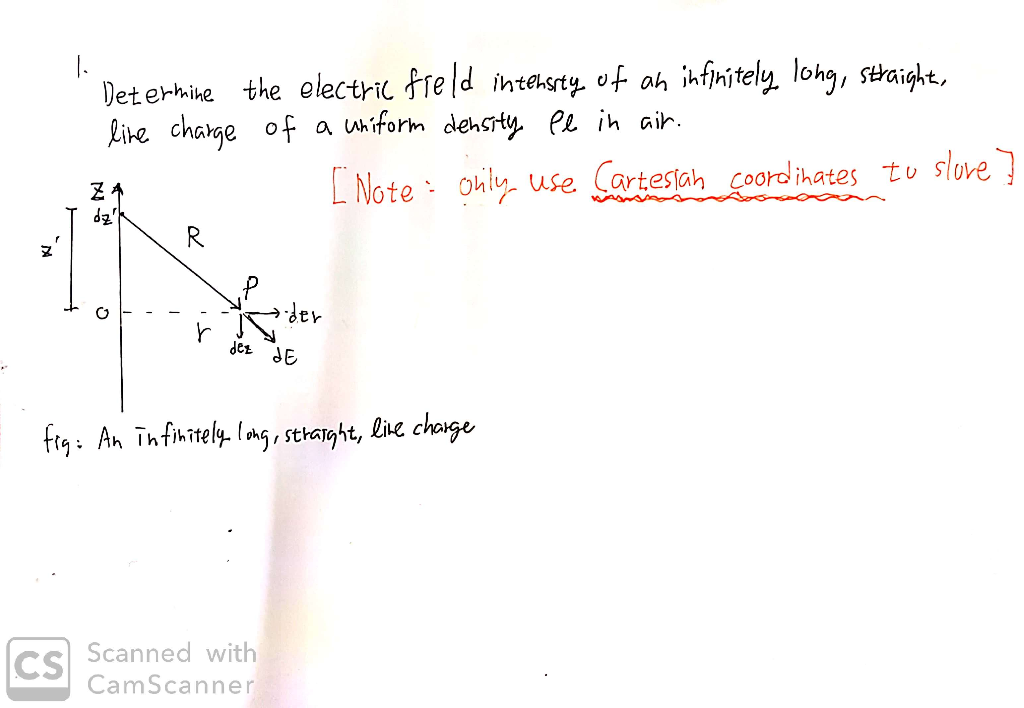 1.
Determine the electric field intensity of an infinitely long, straight,
line charge of a uniform density ρl in air.
[Note: only use Cartesian coordinates to slove]
Z
dz'
z'
R
P
O
r
dEr
dEz
dE
fig: An Infinitely long, straight, line charge
CS
Scanned with
CamScanner